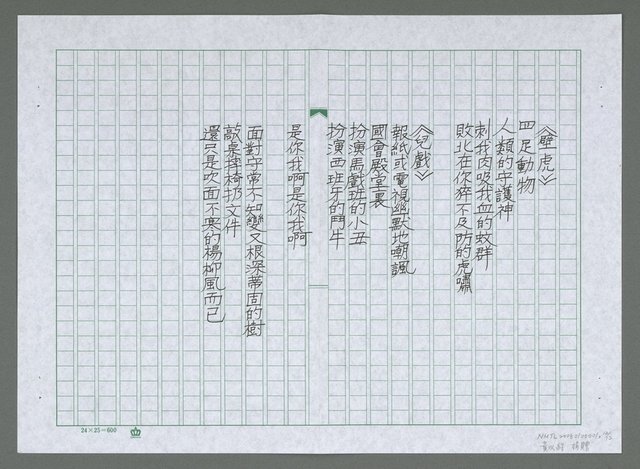 《壁虎》
四足動物
人類的守護神
刺我肉吸我血的蚊群
敗北在你猝不及防的虎嘯
《兒戲》
報紙或電視幽默地嘲諷
國會殿堂裏
扮演馬戲班的小丑
扮演西班牙的鬥牛
是你我啊是你我啊
面對守常不知變又根深蒂固的樹
敲桌摔椅扔文件
還只是吹面不寒的楊柳風而已
24×25=600